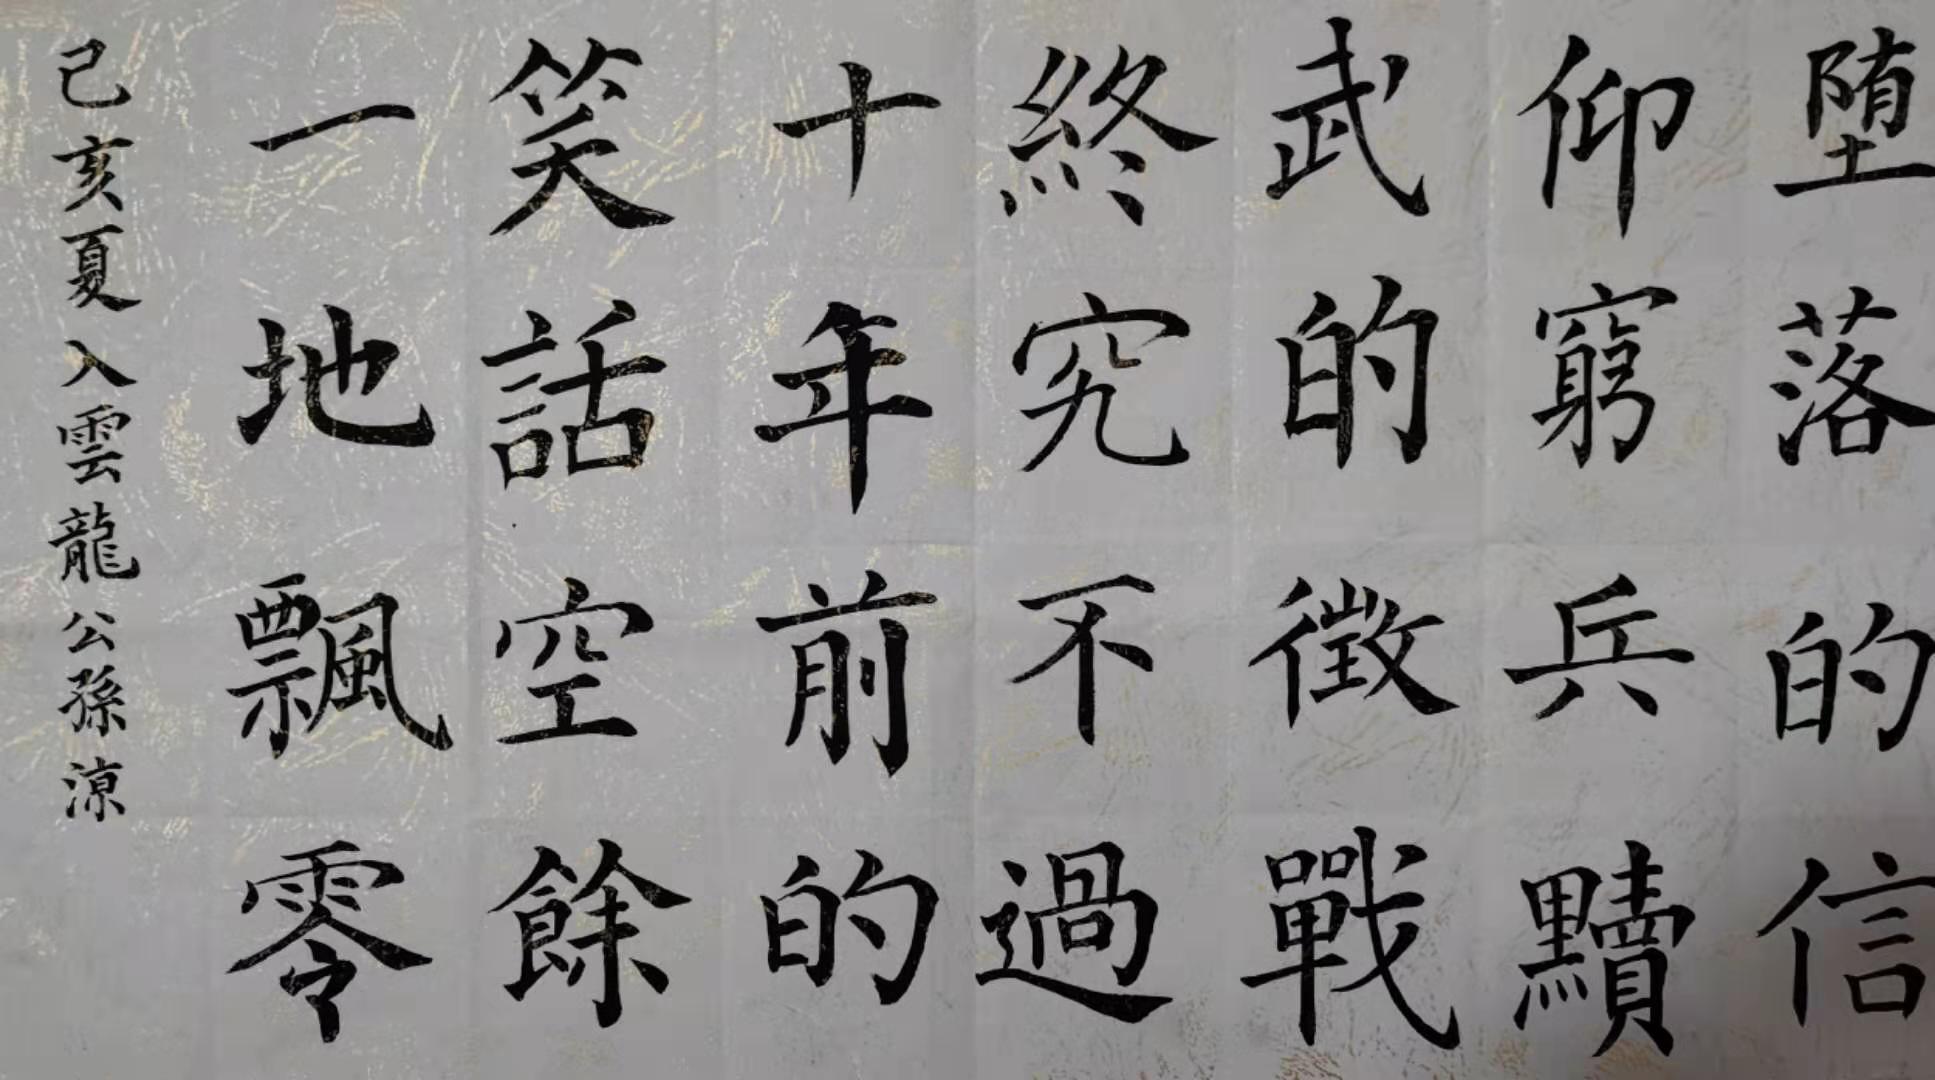 堕落的信
仰窮兵黷
武的徵戰
終究不過
十年前的
笑話空餘
一地飄零
己亥夏入雲龍公孫涼